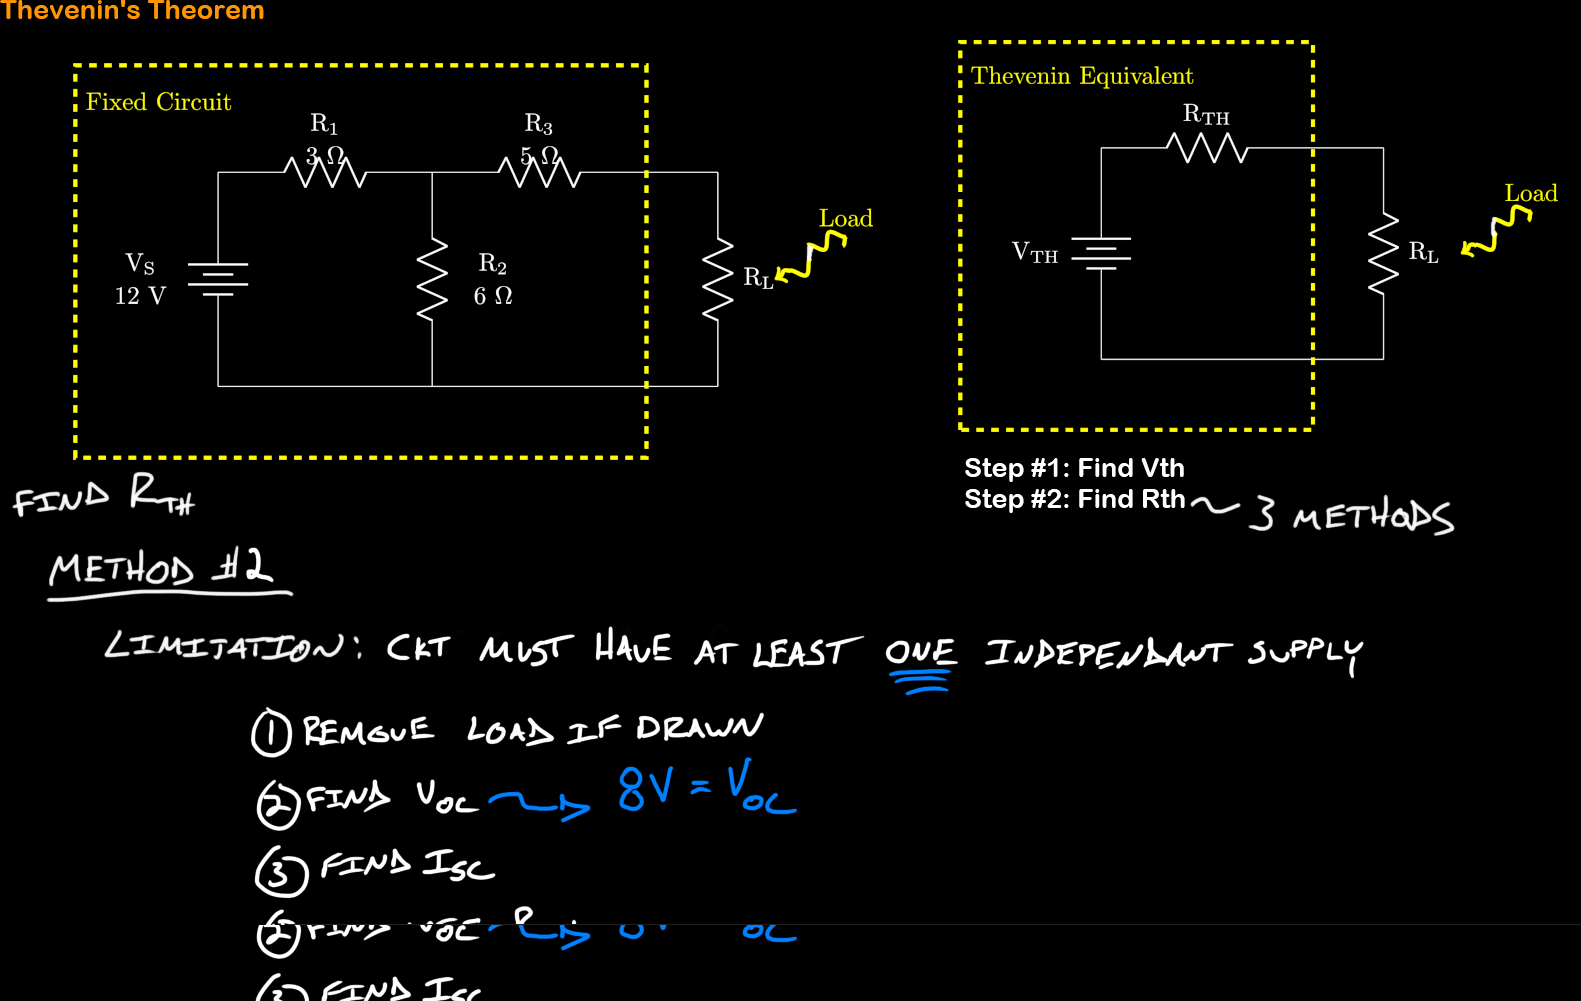 Thevenin's Theorem
Fixed Circuit
R1
3 Ω
R3
5 Ω
VS
12 V
R2
6 Ω
RL
Load
Thevenin Equivalent
RTH
VTH
RL
Load
Step #1: Find Vth
Step #2: Find Rth ~ 3 METHODS
FIND RTH
METHOD #2
LIMITATION: CKT MUST HAVE AT LEAST ONE INDEPENDANT SUPPLY
① REMOVE LOAD IF DRAWN
② FIND VOC → 8V = VOC
③ FIND ISC
② FIND VOC
③ FIND ISC